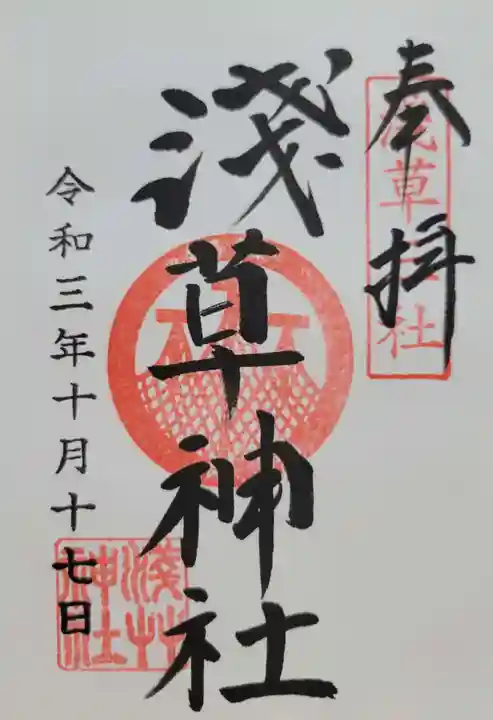 奉拝
浅草神社
淺草神社
令和三年十月十七日
淺艸
神社